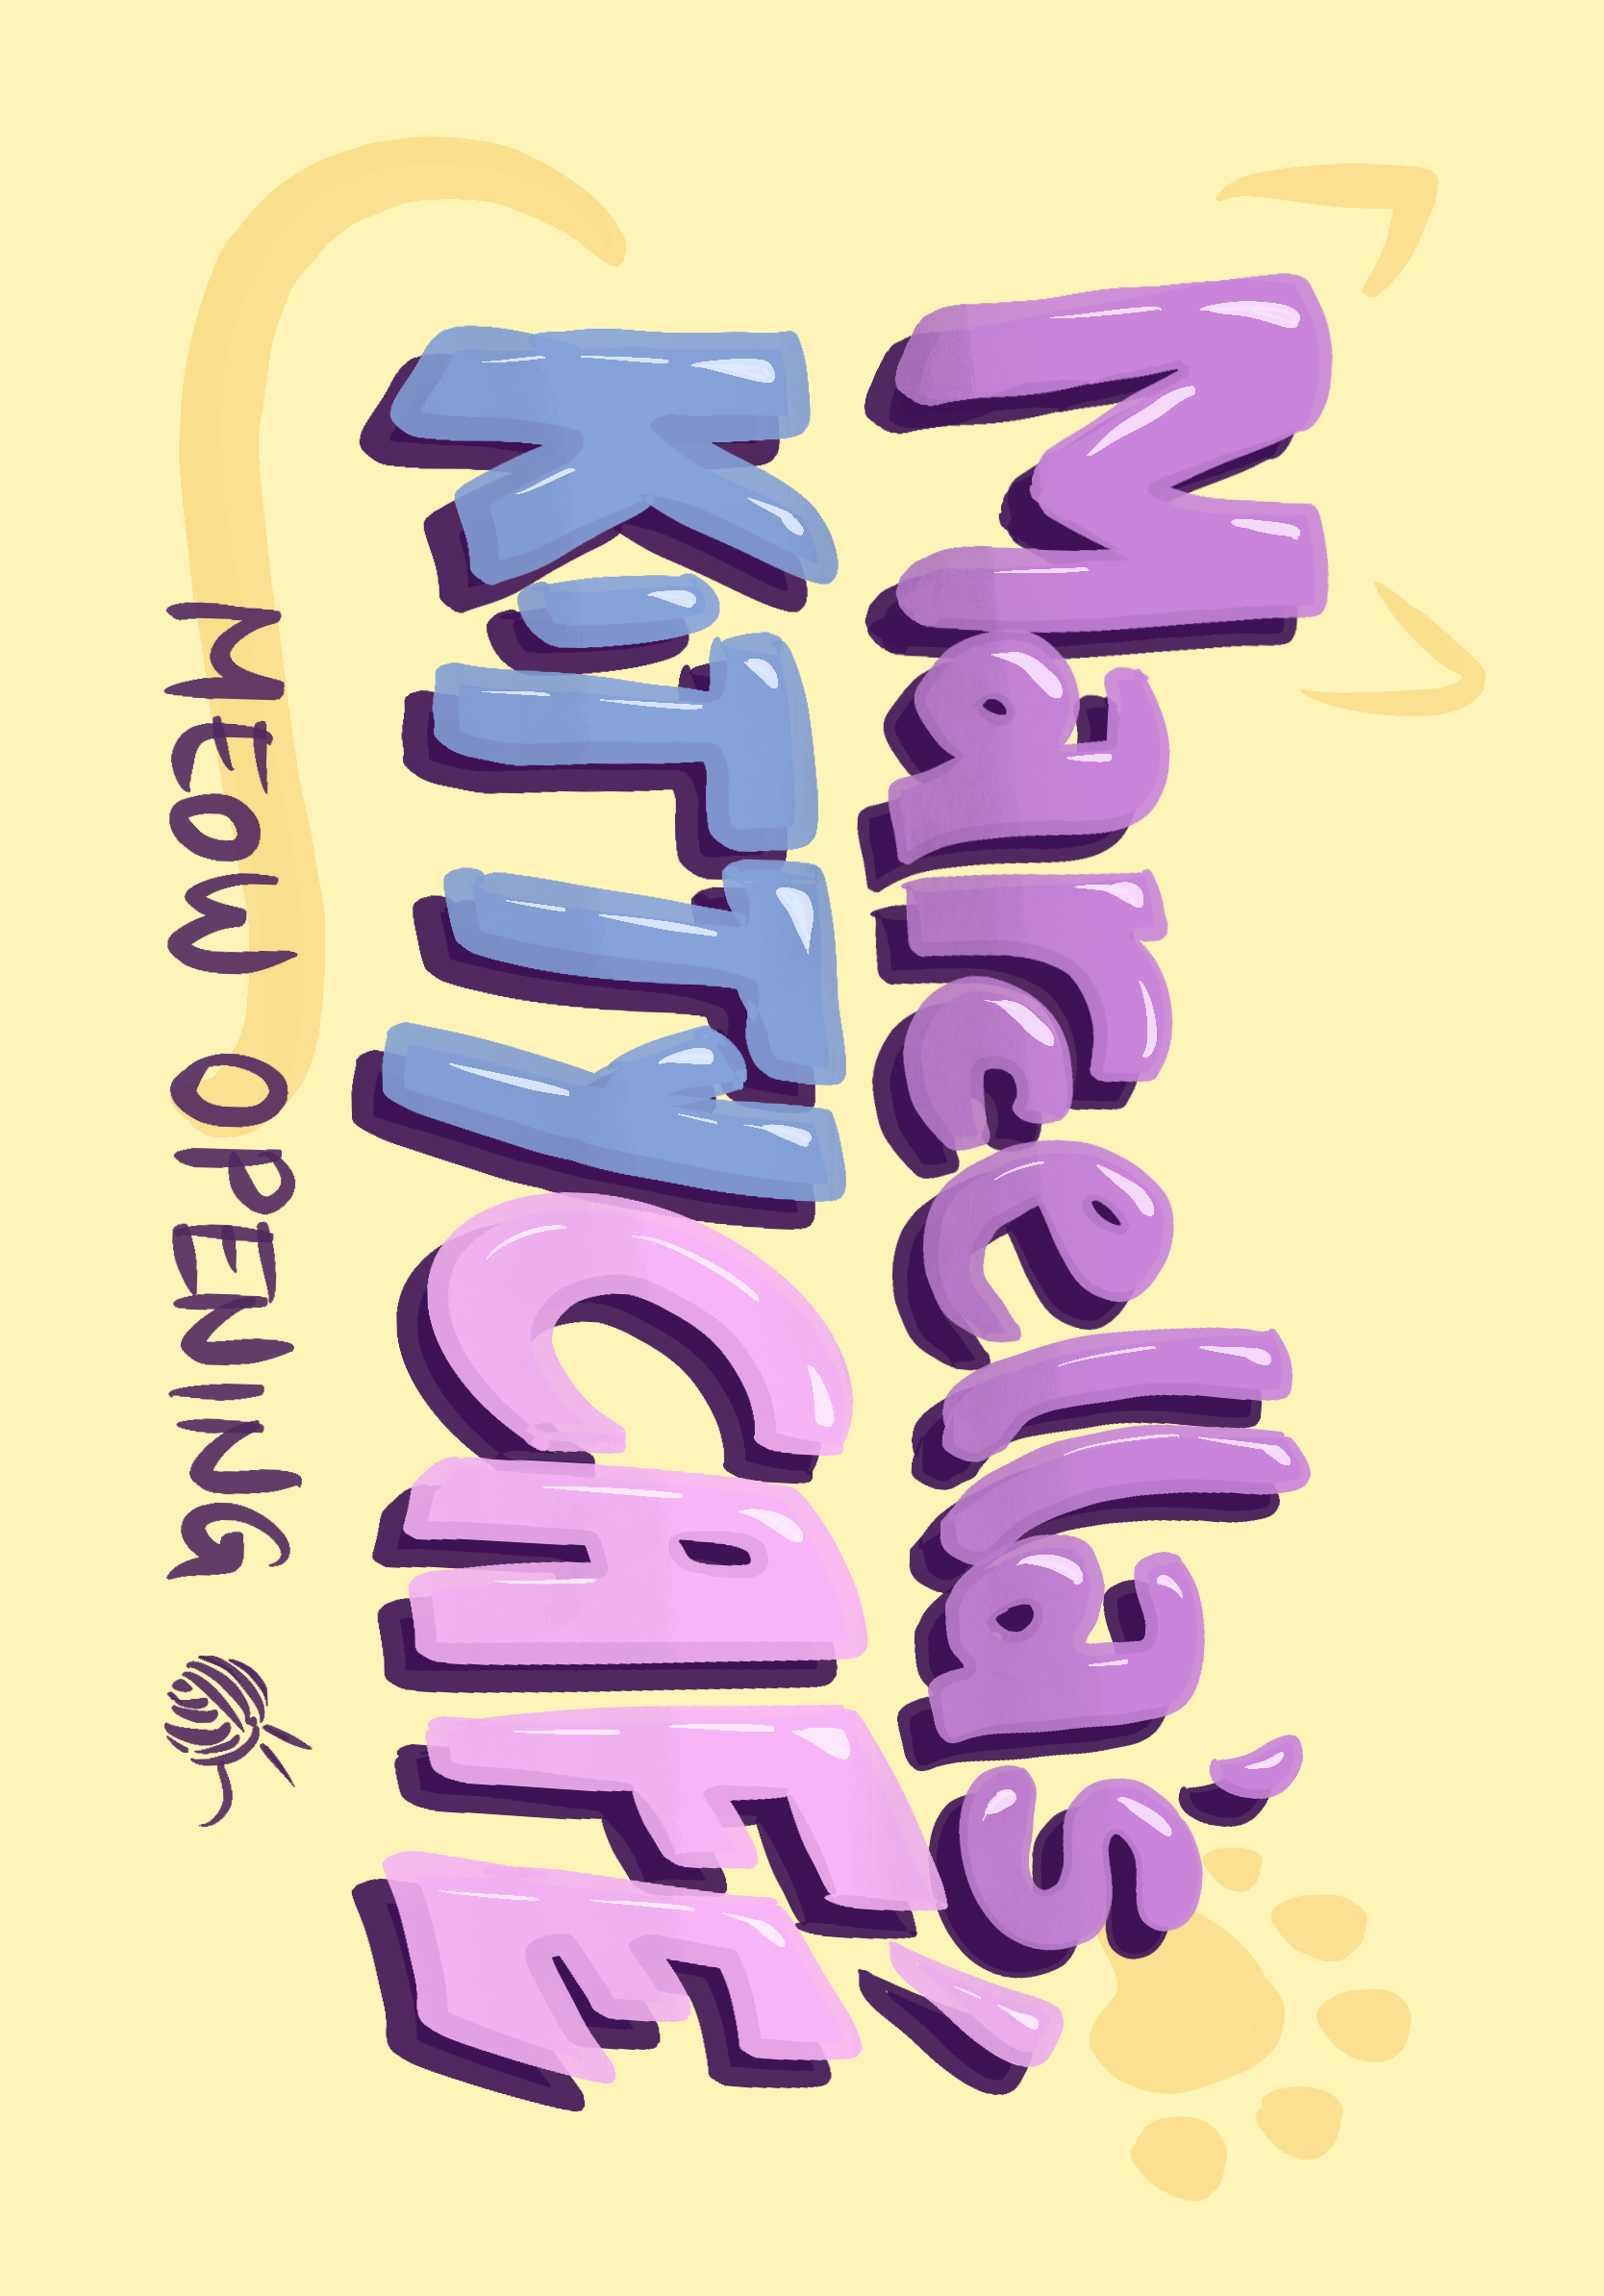 Marcella's
KITTY CAFÉ
MEOW OPENING